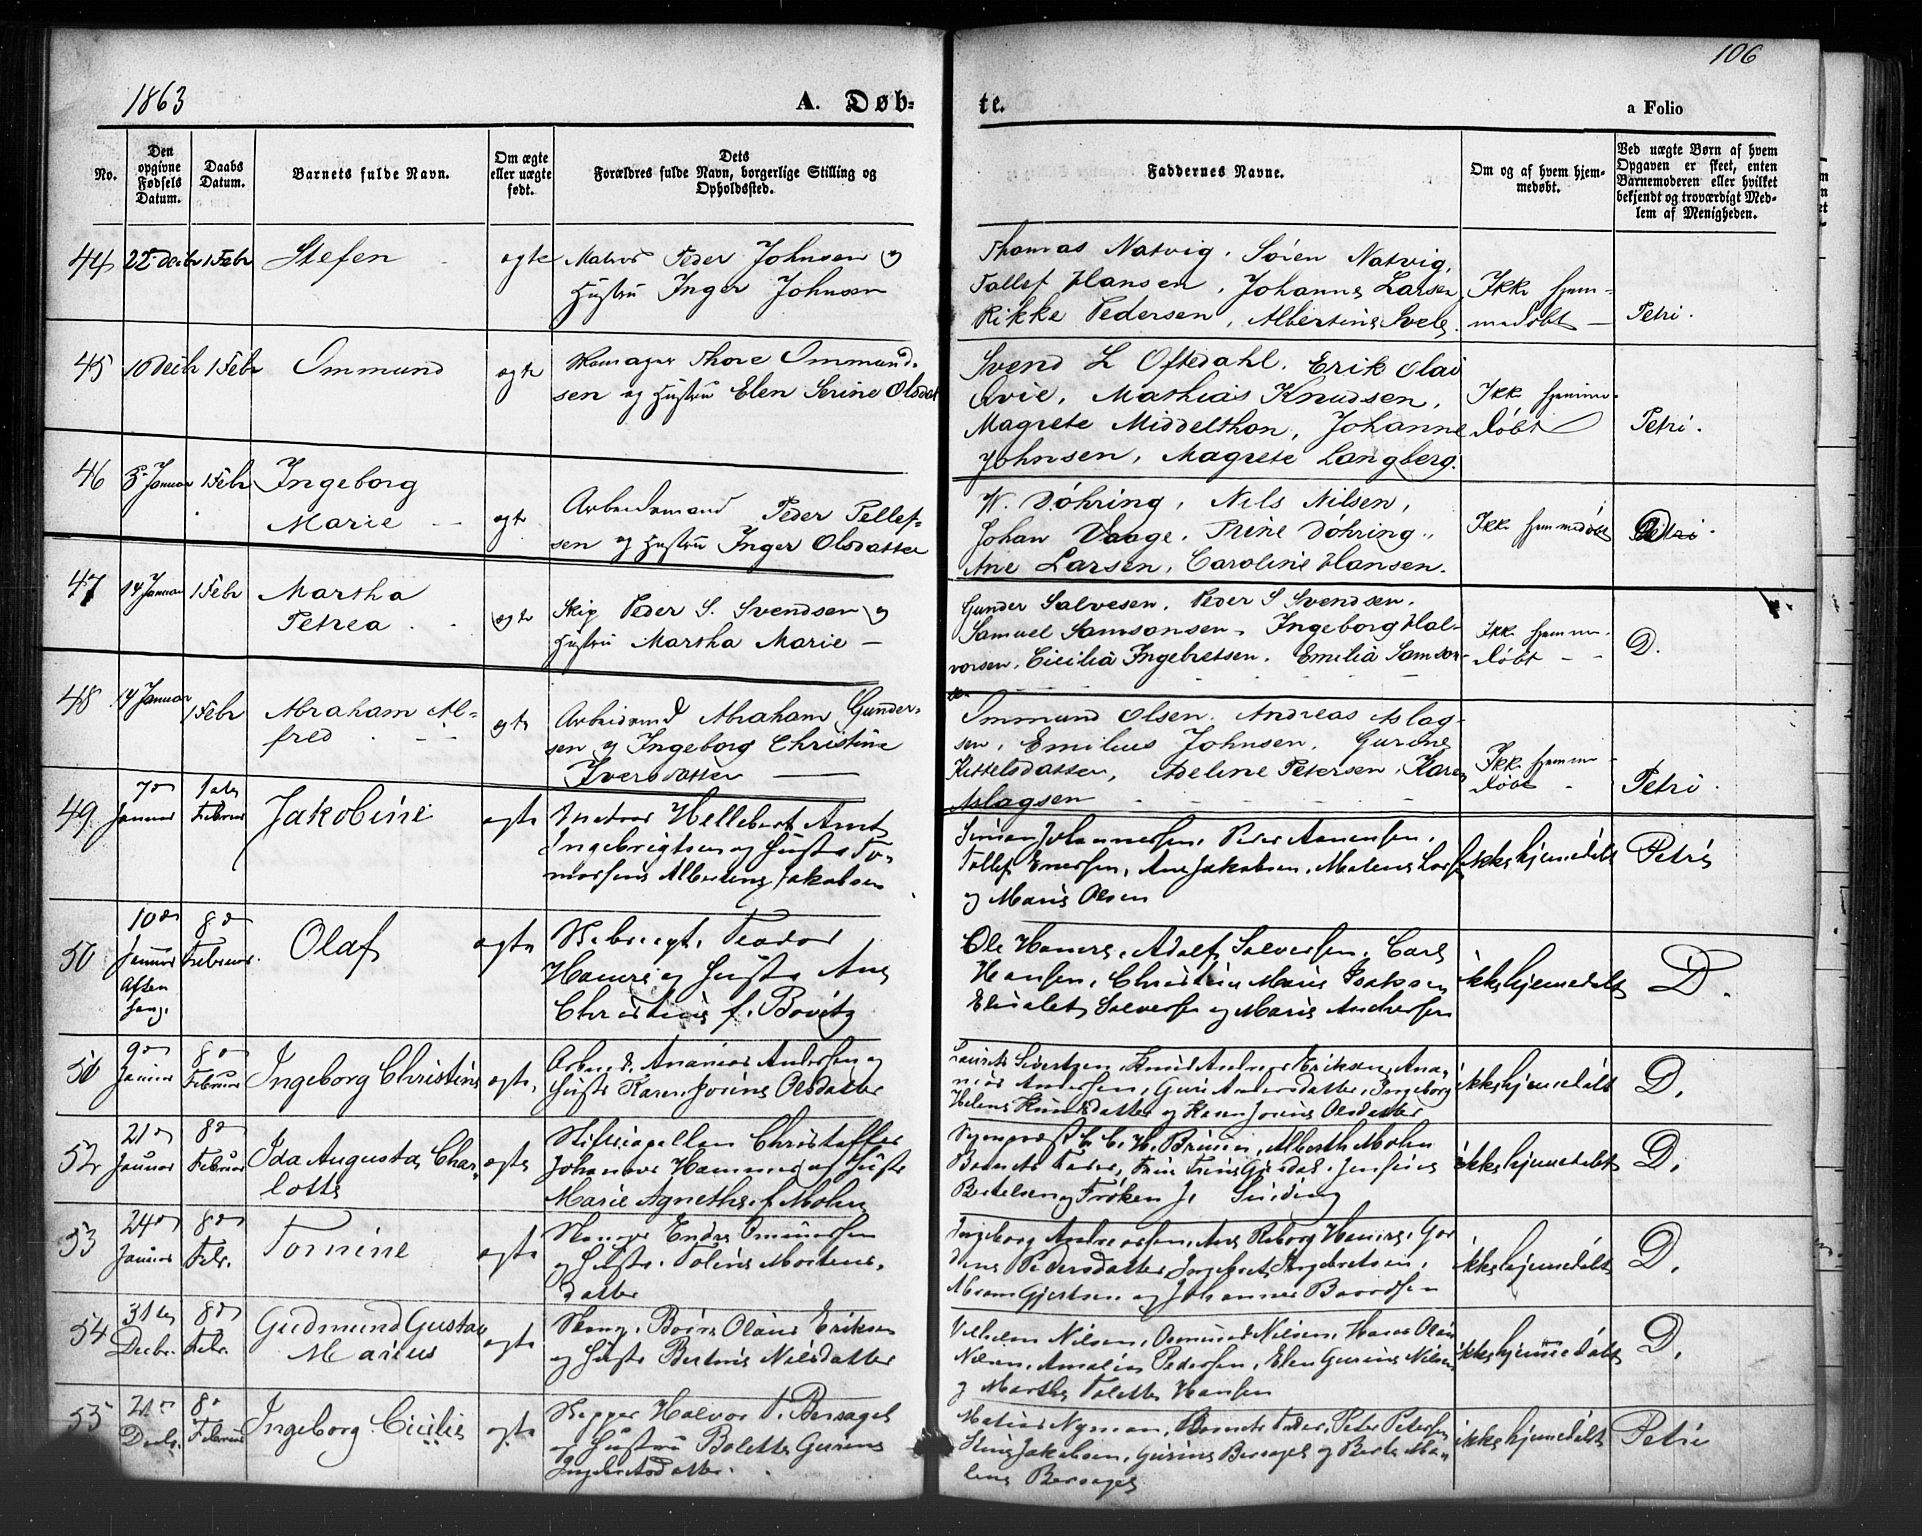 1863
A. Døb-
te.
106
a Folio
No.
Den opgivne Fødsels Datum.
Daabs Datum.
Barnets fulde Navn.
Om ægte eller uægte født.
Dets Forældres fulde Navn, borgerlige Stilling og Opholdssted.
Faddernes Navne.
Om og af hvem hjemmedøbt.
Ved uægte Børn af hvem Opgaven er skeet, enten Barnemoderen eller hvilket bekjendt og troværdigt Medlem af Menigheden.
44 22 Decbr 1 Febr Stefen ægte Matros Peder Johnsen og
Hustru Inger Johnsen
Thomas Natvig, Søren Natvig,
Tallef Hansen, Johannes Larsen,
Rikke Pedersen, Albertine
Ikke hjem-
medøbt
Petri.
45 10 Decb 1 Febr Ommund ægte Thore Ommund-
sen og Hustru Elen Serine Olsdat
Svend L Oftedahl, Erik Olai
Qvie, Mathias Knudsen,
Magrete Middelthon, Johanne
Johnsen, Magrete Langberg.
Ikke hjemme-
døbt
Petri.
46 Januar 1 Febr Ingeborg
Marie ægte
Arbeidsmand Peder Pellef-
sen og Hustru Inger Olsdatter
W. Döhring, Nils Nilsen,
Johan Vaage, Trine Döhring,
Ane Larsen, Caroline Hansen.
Ikke hjemmedøbt
47 14 Januar 1 Febr Martha
Petrea ægte
Skip Peder S. Svendsen og
Hustru Martha Marie
Gunder Salvesen, Peder S Svendsen,
Samuel Samsonsen, Ingeborg Hal-
vorsen, Cicilia Ingebretsen, Emilia Samson-
sen
Ikke hjemme-
døbt
D.
48 14 Januar 1 Febr Abraham Al-
fred ægte
Arbeidsmd Abraham Gunder-
sen og Ingeborg Christine
Iversdatter
Ommund Olsen, Andreas Aslag-
sen, Emilius Johnsen, Gurine
Kittelsdatter, Adeline Petersen, Karen
Aslagsen
Ikke hjemme-
døbt
Petri
49 7de Januar 1ste Februar Jakobine ægte
Matros Hellebert Arnt
Ingebrigtsen og Hustr
Albertine Jakobsen
Simon Johannessen, Peder Aanensen,
Tallef Enersen, Ane Jakobsen, Malene Lars
og Marie Olsen
ikke hjemedøbt
Petri
50 10de Januar Aften 8de Februar Olaf ægte
Teodor
og Hustr Ane
Christine f.
Ole Adolf Salvesen, Carl
Hansen, Christine Marie Isaksen
Salvesen og Marie Andersen
ikke hjemedøbt
D.
51 9de Januar 8de Februar Ingeborg Christine ægte
Arbmd. Ananias Andersen og
Hustr Karen Jorine Olsdatter
Sivertsen, Knud Andreas Eriksen, Ana-
nias Andersen, Guri Andersdatter, Ingeborg
Helene Knudsdatter og Karen Jorine Olsdatter
ikke hjemedøbt
D.
52 21de Januar 8de Februar Ida Augusta Char-
lotte ægte
Christoffer
Johannes Hammer og Hustr
Marie Agnethe f. Mohn
C. H. Bruun, Alberth Mohn
Barnets Fader, Jensine
Bertelsen og Frøken J. Sinding
ikke hjemedøbt
D.
53 24de Januar 8de Febr. Tomine ægte
Endre Omundsen
og Hustr. Toline Mortens-
datter
Ingeborg Andreassen, Ane
Pedersdatter, Ingebret Ingebretsen,
Abram Gjertsen og Johannes Baardsen
ikke hjemedøbt
D.
54 31te Decbr. 8de Febr. Gudmund Gustav
Marius ægte
Børre Olaus Eriksen
og Hustr Bertine Nilsdatter
Vilhelm Nilsen, Osmund Nilsen, Hans Olai
Nilsen, Amalia Pedersen, Elen Gurine Nilsen
og Marthe Tolette Hansen
ikke hjemmedøbt
D.
55 21de Decbr. 8de Februar Ingeborg Cicilie ægte
Skipper Halvor T. Bersagel
og Hustru Bolette Gurine
Ingebretsdatter.
Matias Nyman, Barnets Fader, Peter Petersen
Stine Jakobsen, Gurine Bersagel og Berte Ma-
lene Bersagel
ikke hjemedøbt
Petri